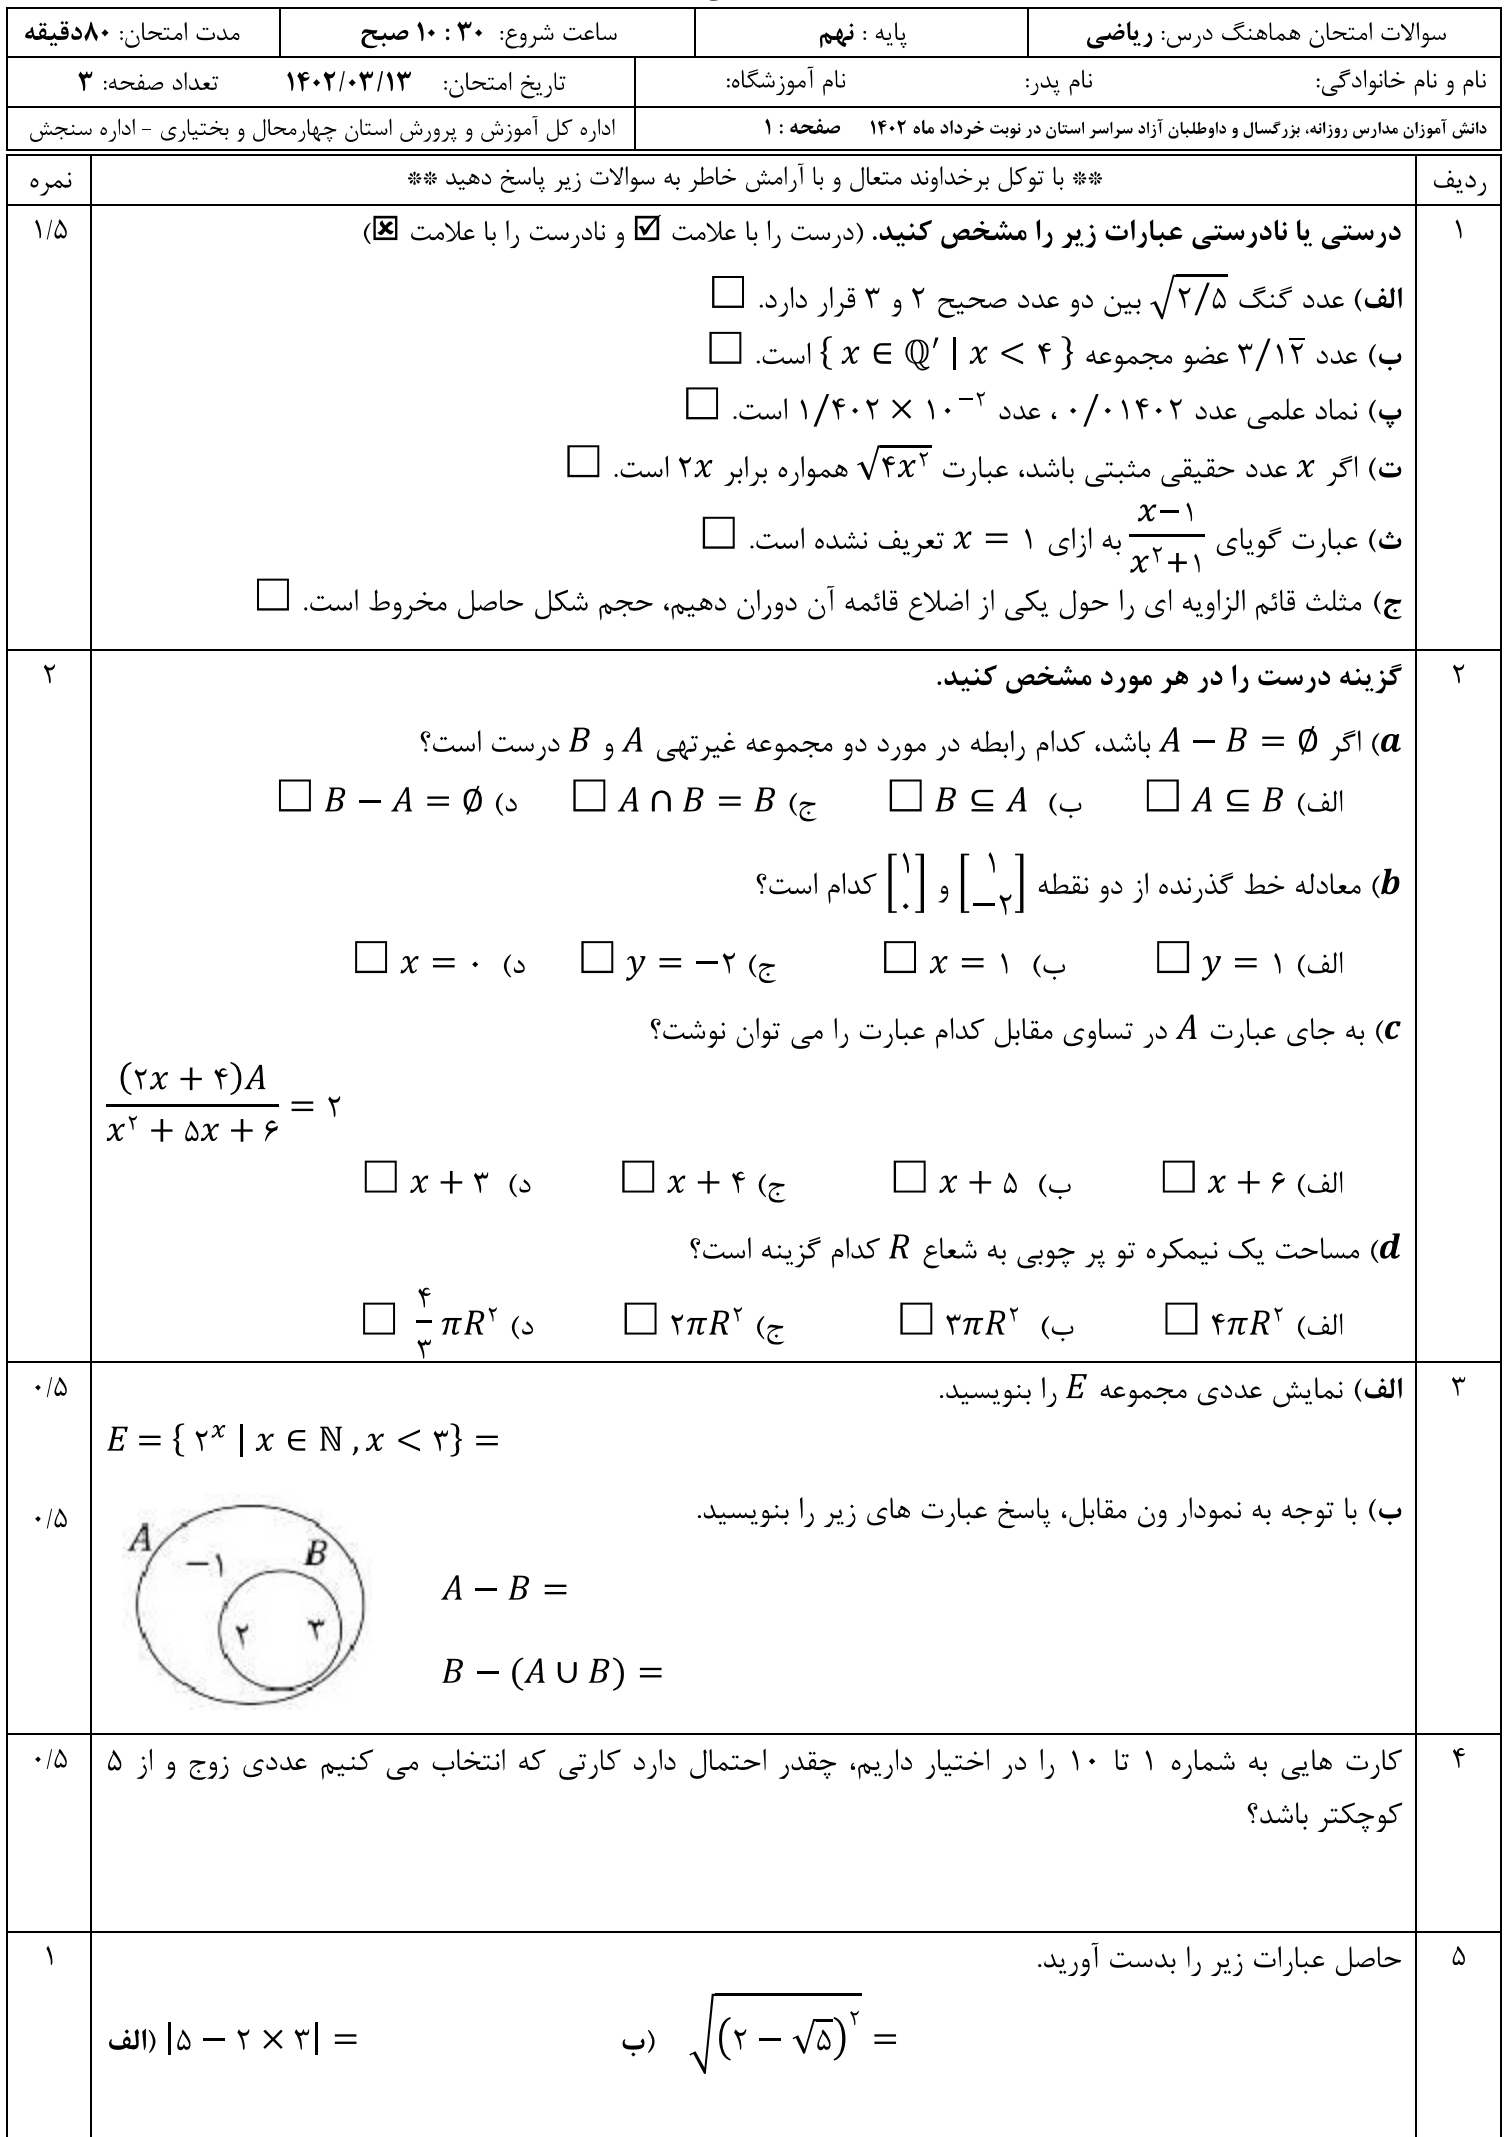 سوالات امتحان هماهنگ درس: ریاضی پایه : نهم ساعت شروع: ۳۰ : ۱۰ صبح مدت امتحان: ۸۰دقیقه
نام و نام خانوادگی: نام پدر: نام آموزشگاه: تاریخ امتحان: ۱۴۰۲/۰۳/۱۳ تعداد صفحه: ۳
دانش آموزان مدارس روزانه، بزرگسال و داوطلبان آزاد سراسر استان در نوبت خرداد ماه ۱۴۰۲ صفحه : ۱ اداره کل آموزش و پرورش استان چهارمحال و بختیاری - اداره سنجش
ردیف ** با توکل برخداوند متعال و با آرامش خاطر به سوالات زیر پاسخ دهید ** نمره
۱ درستی یا نادرستی عبارات زیر را مشخص کنید. (درست را با علامت ☑ و نادرست را با علامت ☒) ۱/۵
الف) عدد گنگ √۲/۵ بین دو عدد صحیح ۲ و ۳ قرار دارد. □
ب) عدد ۳/۱۲̅ عضو مجموعه { x ∈ ℚ′ | x < ۴ } است. □
پ) نماد علمی عدد ۰/۰۱۴۰۲ ، عدد ۱/۴۰۲ × ۱۰⁻² است. □
ت) اگر x عدد حقیقی مثبتی باشد، عبارت √(۴x²) همواره برابر ۲x است. □
ث) عبارت گویای (x−۱)/(x²+۱) به ازای x = ۱ تعریف نشده است. □
ج) مثلث قائم الزاویه ای را حول یکی از اضلاع قائمه آن دوران دهیم، حجم شکل حاصل مخروط است. □
۲ گزینه درست را در هر مورد مشخص کنید. ۲
a) اگر A − B = ∅ باشد، کدام رابطه در مورد دو مجموعه غیرتهی A و B درست است؟
الف) A ⊆ B □ ب) B ⊆ A □ ج) A ∩ B = B □ د) B − A = ∅ □
b) معادله خط گذرنده از دو نقطه [۱ −۲] و [۱ ۰] کدام است؟
الف) y = ۱ □ ب) x = ۱ □ ج) y = −۲ □ د) x = ۰ □
c) به جای عبارت A در تساوی مقابل کدام عبارت را می توان نوشت؟
(۲x + ۴)A / (x² + ۵x + ۶) = ۲
الف) x + ۶ □ ب) x + ۵ □ ج) x + ۴ □ د) x + ۳ □
d) مساحت یک نیمکره تو پر چوبی به شعاع R کدام گزینه است؟
الف) ۴πR² □ ب) ۳πR² □ ج) ۲πR² □ د) ۴/۳ πR² □
۳ الف) نمایش عددی مجموعه E را بنویسید. ۰/۵
E = { ۲ˣ | x ∈ ℕ , x < ۳} =
ب) با توجه به نمودار ون مقابل، پاسخ عبارت های زیر را بنویسید. ۰/۵
A B −۱ ۲ ۳
A − B =
B − (A ∪ B) =
۴ کارت هایی به شماره ۱ تا ۱۰ را در اختیار داریم، چقدر احتمال دارد کارتی که انتخاب می کنیم عددی زوج و از ۵ ۰/۵
کوچکتر باشد؟
۵ حاصل عبارات زیر را بدست آورید. ۱
الف) |۵ − ۲ × ۳| = ب) √((۲ − √۵)²) =